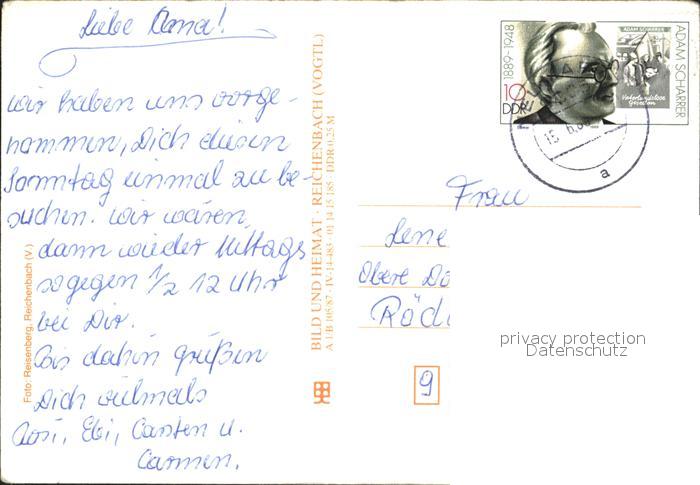 Liebe Oma!
wir haben uns vorge-
nommen, Dich diesen
Sonntag einmal zu be-
suchen. Wir wären
dann wieder Mittags
so gegen 1/2 12 Uhr
bei Dir.
Bis dahin grüßen
Dich vielmals
Rosi, Ebi, Carsten u.
Carmen.
Foto: Reisenberg, Reichenbach (V.)
BILD UND HEIMAT · REICHENBACH (VOGTL)
A 1/B 105/87 · IV-14-483 · 01 14 15 185 · DDR 0,25 M
1889-1948
10
DDR
ADAM SCHARRER
ADAM SCHARRER
Vaterlandslose
Gesellen
15
a
Frau
Lene
Obere Do
Rödl
9
privacy protection
Datenschutz